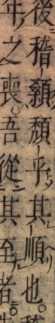 後稽顙頹乎其順也
年之喪吾從其至者